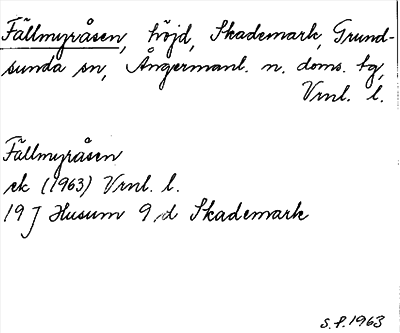 Fällmyråsen, höjd, Skademark, Grund-
sunda sn, Ångermanl. n. doms. tg,
Vrnl. l.
Fällmyråsen
ek (1963) Vrnl. l.
19 J Husum 9 d Skademark
S.F. 1963